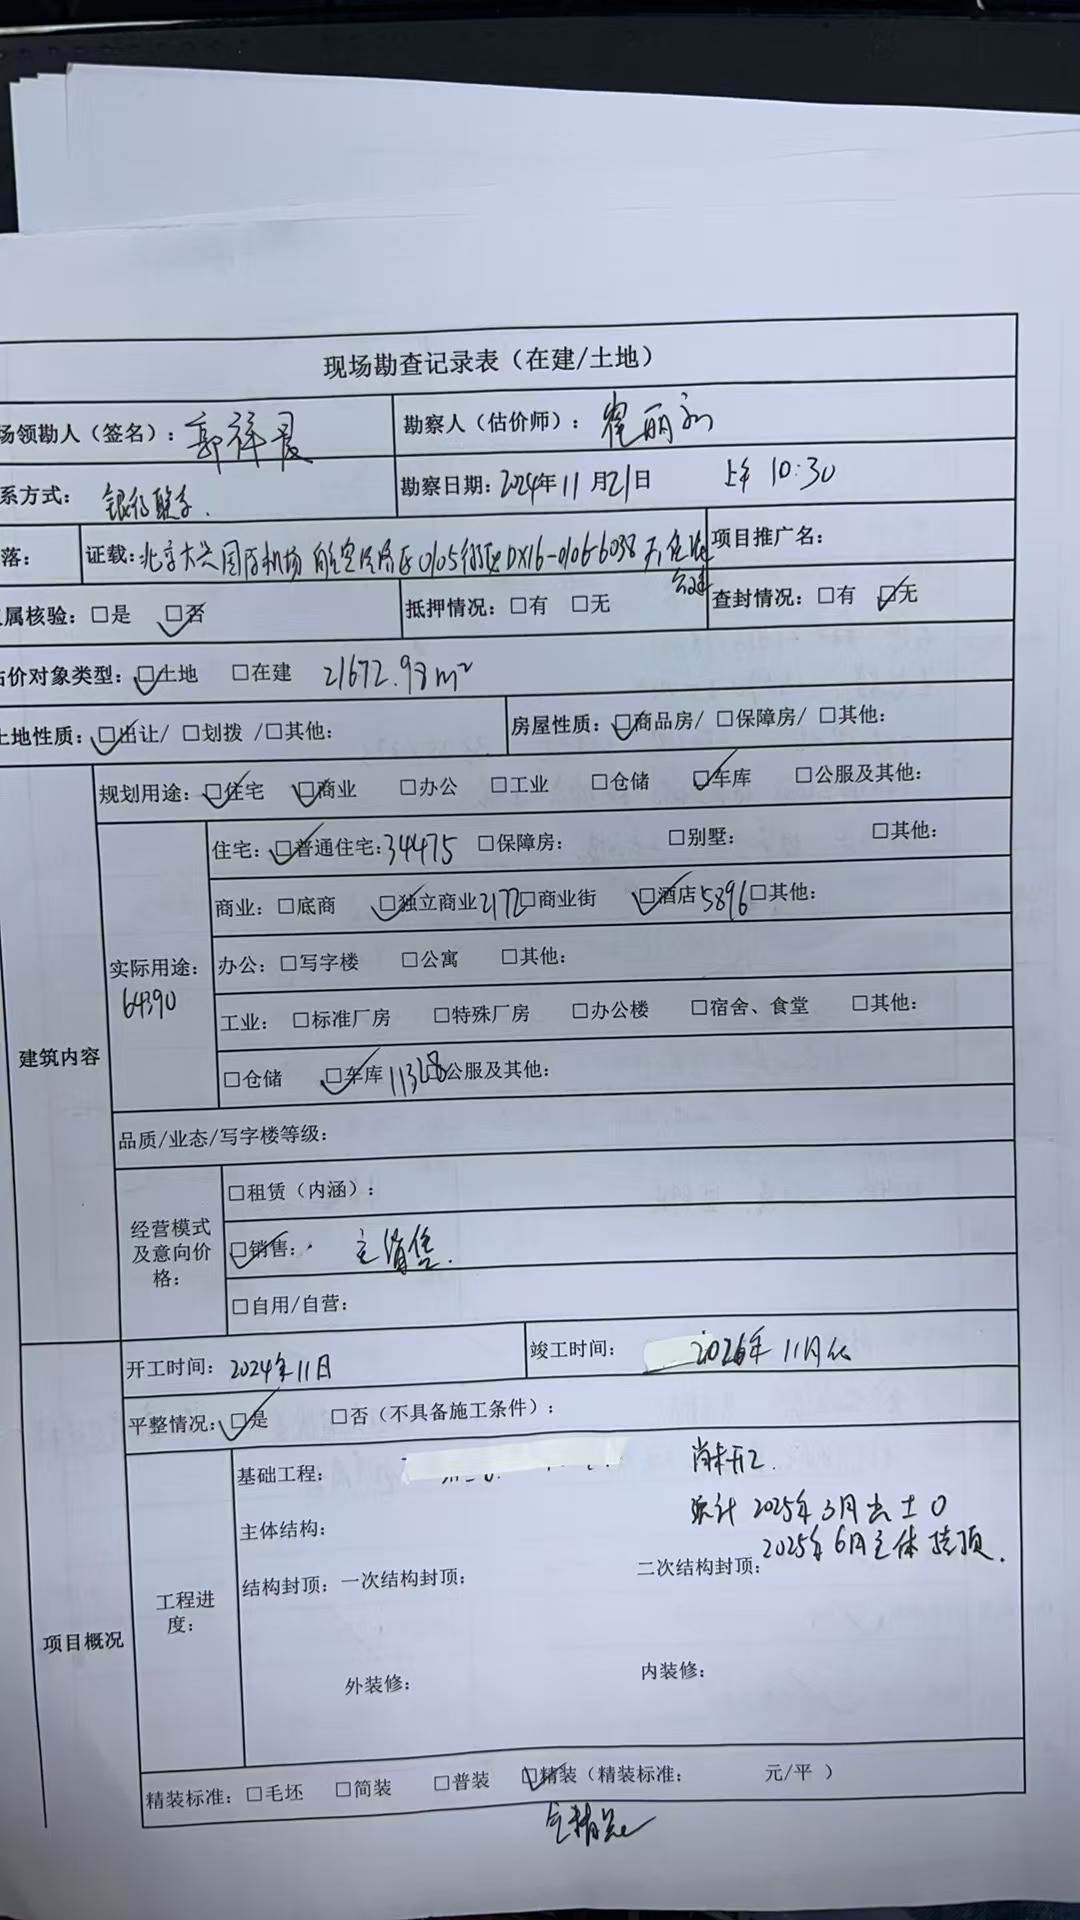 现场勘查记录表（在建/土地）
场领勘人（签名）：郭祥晨 勘察人（估价师）：
系方式：银行联系. 勘察日期：2024年11月21日 上午 10:30
落： 证载：北京大兴国际机场 航空经济区0105街区DX16-0106-6038 项目推广名：
属核验：□是 □否 抵押情况：□有 □无 查封情况：□有 □无
估价对象类型：□土地 □在建 21672.98m²
土地性质：□出让/ □划拨 /□其他： 房屋性质：□商品房/ □保障房/ □其他：
建筑内容
规划用途：□住宅 □商业 □办公 □工业 □仓储 □车库 □公服及其他：
实际用途：
64390
住宅：□普通住宅：34475 □保障房： □别墅： □其他：
商业：□底商 □独立商业2172□商业街 □酒店5896□其他：
办公：□写字楼 □公寓 □其他：
工业：□标准厂房 □特殊厂房 □办公楼 □宿舍、食堂 □其他：
□仓储 □车库11328□公服及其他：
品质/业态/写字楼等级：
经营模式
及意向价
格：
□租赁（内涵）：
□销售： 主销售.
□自用/自营：
项目概况
开工时间：2024年11日 竣工时间：2026年11月
平整情况：□是 □否（不具备施工条件）：
工程进
度：
基础工程： 尚未开工.
主体结构： 预计 2025年3月出土0
2025年6月主体结顶.
结构封顶：一次结构封顶： 二次结构封顶：
外装修： 内装修：
精装标准：□毛坯 □简装 □普装 □精装（精装标准： 元/平 ）